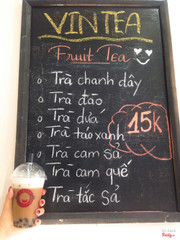 VINTEA
Fruit Tea
Trà chanh dây
Trà đào
Trà dứa
Trà táo xanh
15k
Trà cam sả
Trà cam quế
Trà tắc sả